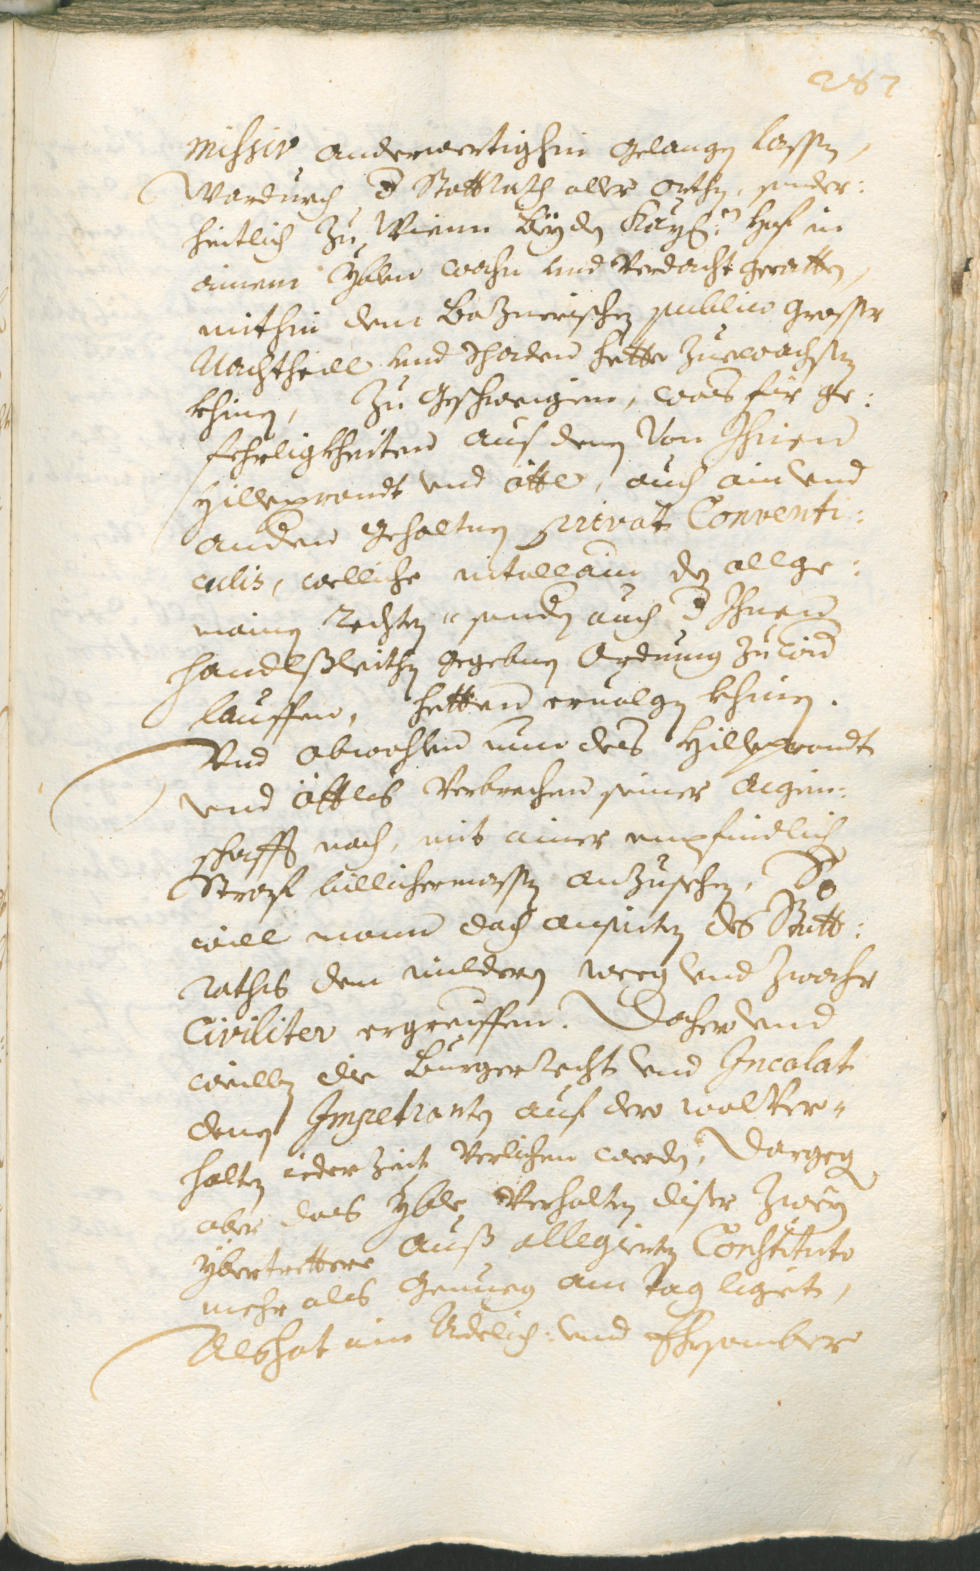 287
missiv anderwertighin gelangen lassen,
Wardurch d Stattrath aller orthen, sonder:
heitlich zu Wienn bey dem Kays: Hof in
ainem yblen wohn und Verdacht geratten,
mithin dem Boznerischen publico grosser
Nachtheill und Schaden hette zuewachsen
khinen, zu geschweigen, was für ge:
fehrligkheiten aus denen Von Ihnen
Hilleprandt und ättl, auch ain und
andern gehaltnen privat Conventi:
culis, welliche nit allain den allge:
mainen Rechten, sonder auch d Ihnen
Handlsleithen gegebnen Ordnung zuwid
lauffen, hetten ervolgen khinen.
Und obwohlen nun des Hilleprandt
und ättls Verbrechen seiner aigen:
schafft nach, mit ainer empfindlich
Straf billichermassen anzusehen, So
will mann doch anseiten des Statt:
raths den milderen weeg und zwahr
Civiliter ergreiffen. Dahero und
weillen die Burgerrecht und Incolat
denen Impetranten auf dero wolver-
halten ieder Zeit Verlichen werden, Dargegen
aber das yble Verhalten diser zwey
ybertrettere auß allegierten Constituto
mehr als genueg am tag ligiet,
Als hat ein Adelich: und Ehrsamber